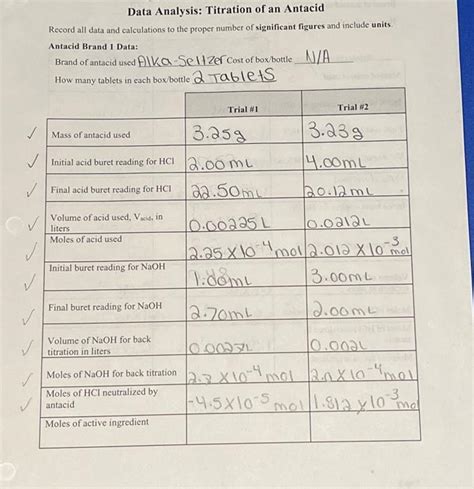 Data Analysis: Titration of an Antacid
Record all data and calculations to the proper number of significant figures and include units.
Antacid Brand 1 Data:
Brand of antacid used Alka-Seltzer Cost of box/bottle N/A
How many tablets in each box/bottle 2 Tablets
Trial #1 Trial #2
✓ Mass of antacid used 3.25g 3.23g
✓ Initial acid buret reading for HCl 2.00mL 4.00mL
✓ Final acid buret reading for HCl 22.50mL 20.12mL
✓ Volume of acid used, Vacid, in
liters 0.00225L 0.0212L
✓ Moles of acid used 2.25 X10-4 mol 2.012 X10-3 mol
✓ Initial buret reading for NaOH 3.00mL
✓ Final buret reading for NaOH 2.70mL 2.00mL
✓ Volume of NaOH for back
titration in liters 0.002L
✓ Moles of NaOH for back titration X10-4 mol X10-4 mol
✓ Moles of HCl neutralized by
antacid -4.5X10-5 mol 1.812 X10-3 mol
Moles of active ingredient